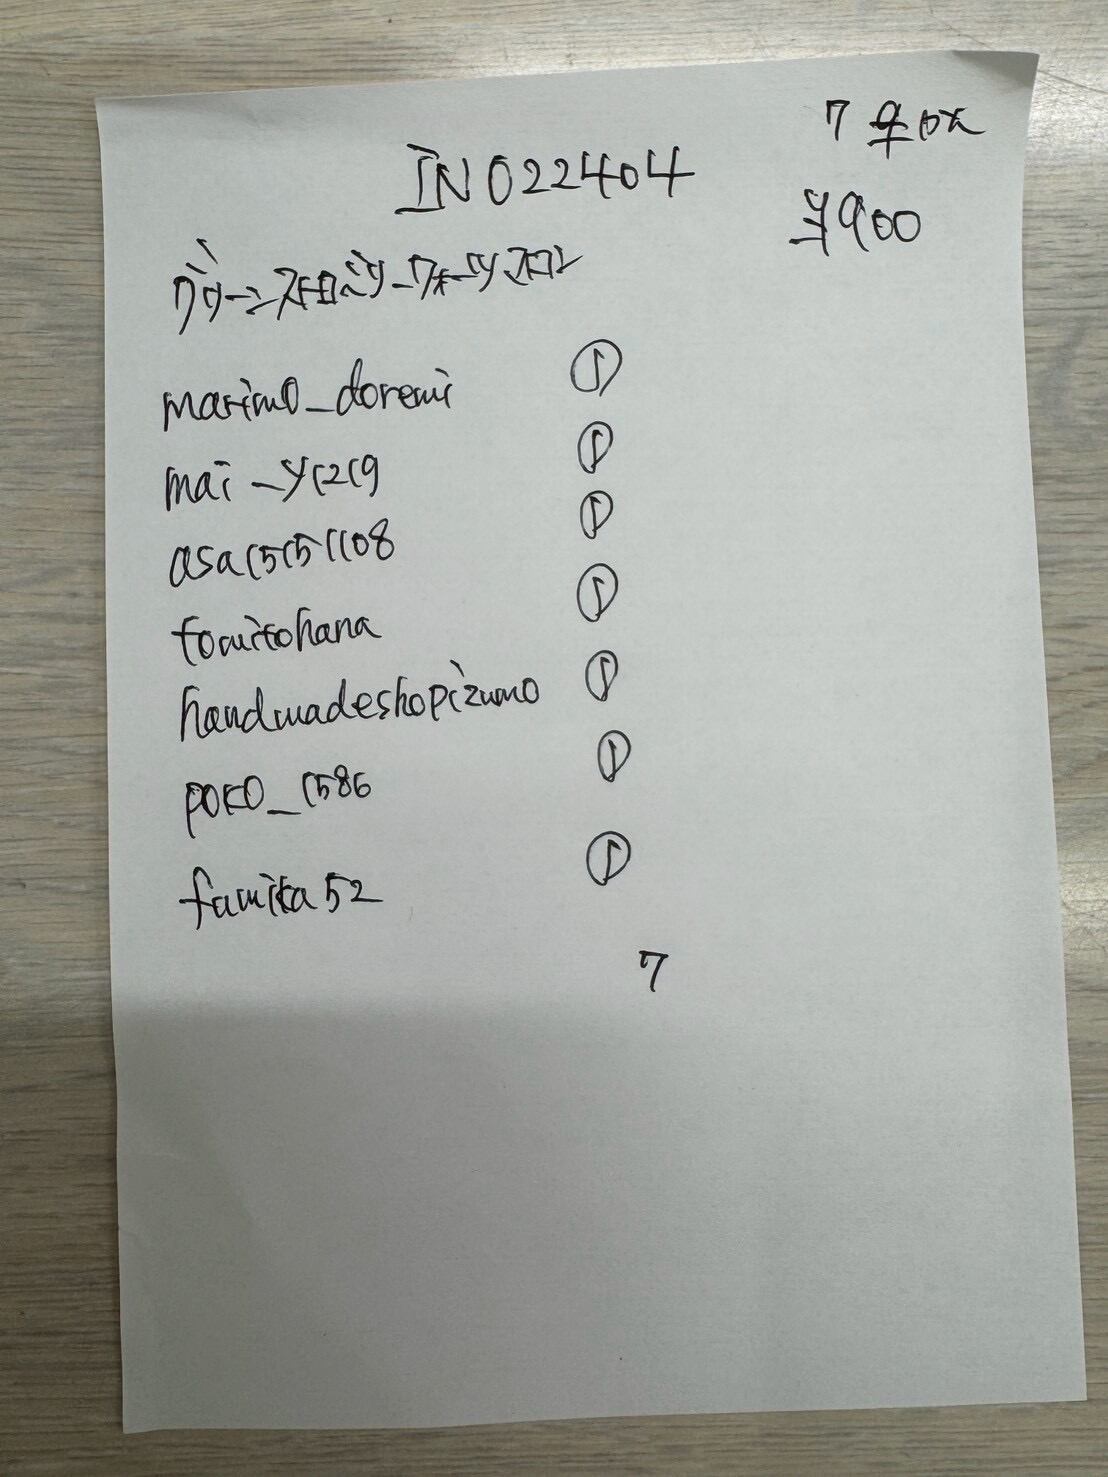 7 
IN022404
¥900
グリーンストロベリークォーツ
marimo_doremi ①
mai_y1219 ①
asa15151108 ①
tomitohana ①
handmadeshopizumo ①
poko_1586 ①
fumika52 ①
7